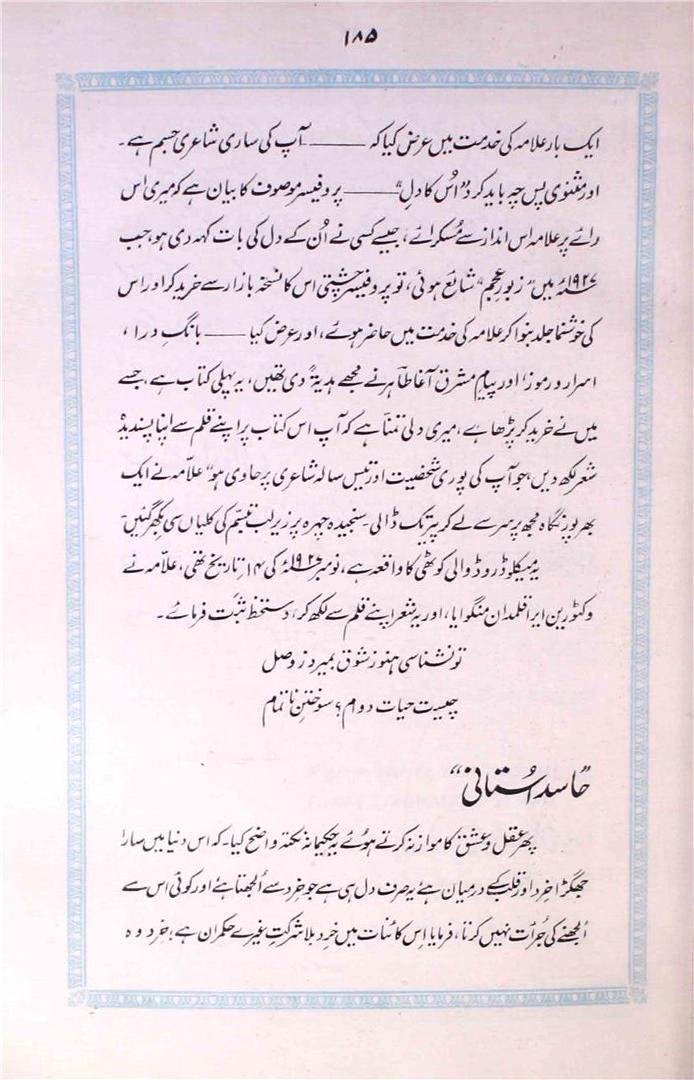 ۱۸۵
ایک بار علامہ کی خدمت میں عرض کیا کہ ——— آپ کی ساری شاعری جسم ہے۔
اور مثنوی پس چہ باید کرد "اُس کا دل" ——— پروفیسر موصوف کا بیان ہے کہ میری اس
رائے پر علامہ اس انداز سے مُسکرائے، جیسے کسی نے اُن کے دل کی بات کہہ دی ہو، جب
۱۹۲۷ء میں "زبورِ عجم" شائع ہوئی، تو پروفیسر چشتی اس کا نسخہ بازار سے خرید کر اور اس
کی خوشنما جلد بنوا کر علامہ کی خدمت میں حاضر ہوئے، اور عرض کیا ——— بانگِ درا،
اسرار و رموز، اور پیامِ مشرق آغا طاہر نے مجھے ہدیۃً دی تھیں، یہ پہلی کتاب ہے، جسے
میں نے خرید کر پڑھا ہے، میری دلی تمنّا ہے کہ آپ اس کتاب پر اپنے قلم سے اپنا پسندیدہ
شعر لکھ دیں، جو آپ کی پوری شخصیت اور تیس سالہ شاعری پر حاوی ہو" علاّمہ نے ایک
بھرپور نگاہ مجھ پر سر سے لے کر پیر تک ڈالی۔ سنجیدہ چہرہ پر زیرِ لب تبسّم کی کلیاں سی بکھر گئیں۔
یہ میکلوڈ روڈ والی کوٹھی کا واقعہ ہے، نومبر ۱۹۲۷ء کی ۱۴ تاریخ تھی، علاّمہ نے
وکٹورین ایرا قلمدان منگوایا، اور یہ شعر اپنے قلم سے لکھ کر، دستخط ثبت فرمائے۔
تو نشناسی ہنوز شوق بمیرد ز وصل
چیست حیات دوام؟ سوختنِ ناتمام
"حاسد اُستانی"
پھر عقل و عشق کا موازنہ کرتے ہوئے یہ حکیمانہ نکتہ واضح کیا۔ کہ اس دنیا میں سارا
جھگڑا خِرد اور قلب کے درمیان ہے یہ صرف دل ہی ہے جو خرد سے اُلجھتا ہے اور کوئی اس سے
اُلجھنے کی جرأت نہیں کرتا، فرمایا اِس کائنات میں خرد بلا شرکتِ غیرے حکمران ہے؛ خرد وہ